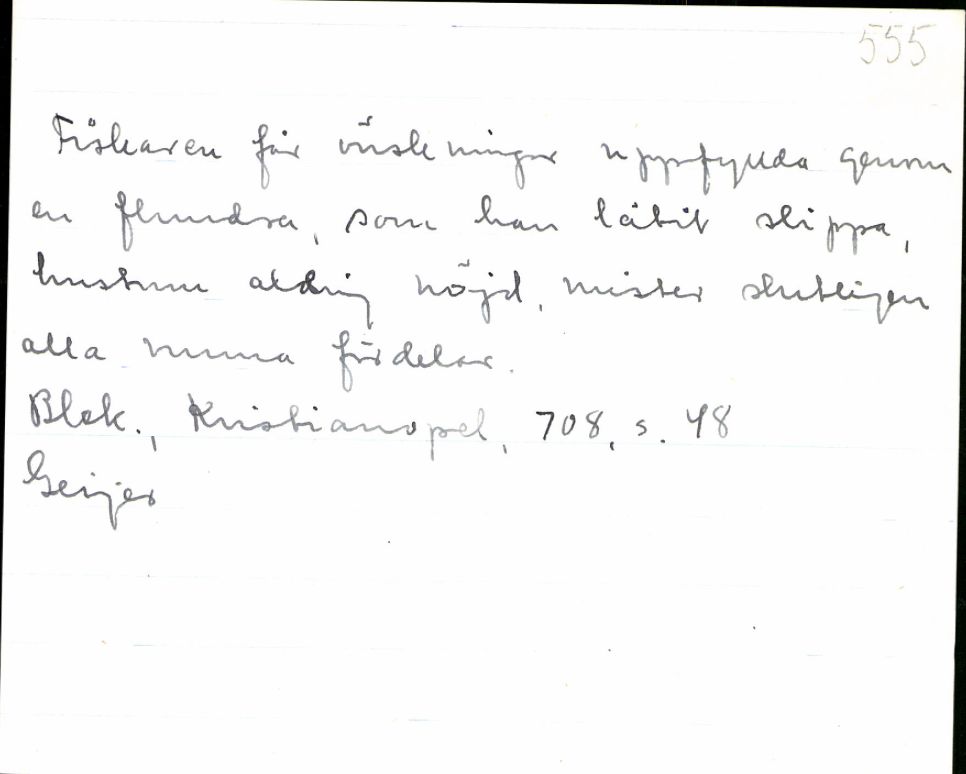 555
Fiskaren får önskningar uppfyllda genom
en flundra, som han låtit slippa,
hustrun aldrig nöjd, mister slutligen
alla vunna fördelar.
Blek., Kristianopel, 708, s. 48
Geijer